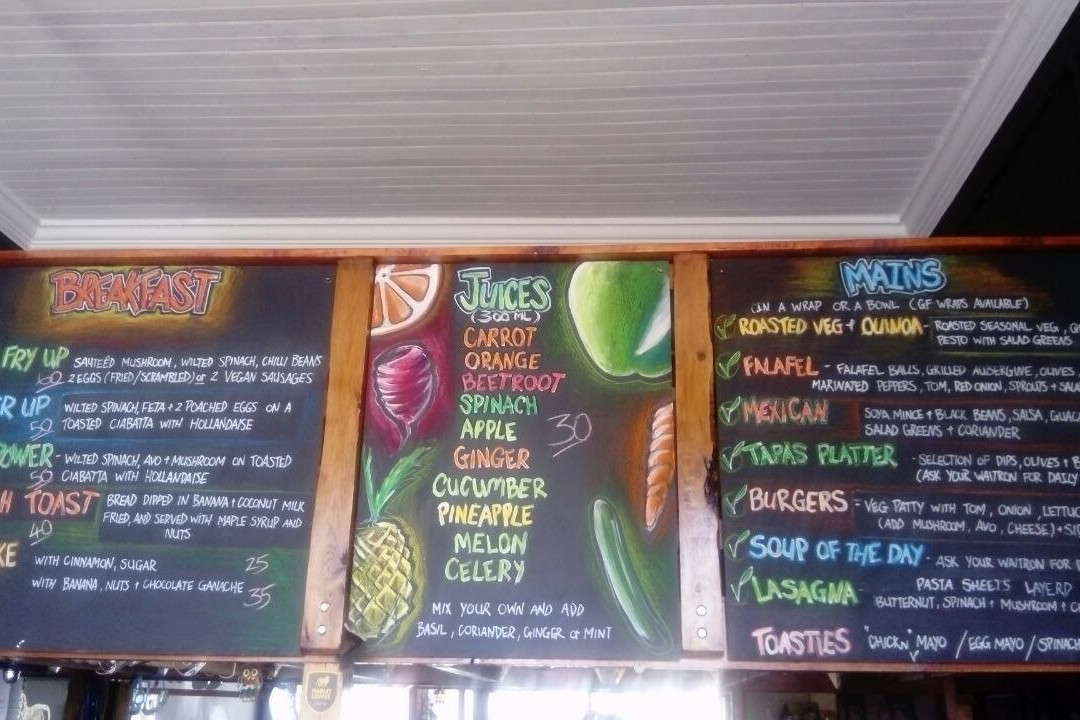 BREAKFAST
FRY UP SAUTEÉD MUSHROOM, WILTED SPINACH, CHILLI BEANS
2 EGGS (FRIED/SCRAMBLED) or 2 VEGAN SAUSAGES
ER UP WILTED SPINACH, FETA + 2 POACHED EGGS ON A
50 TOASTED CIABATTA WITH HOLLANDAISE
POWER - WILTED SPINACH, AVO + MUSHROOM ON TOASTED
50 CIABATTA WITH HOLLANDAISE
H TOAST BREAD DIPPED IN BANANA + COCONUT MILK
FRIED, AND SERVED WITH MAPLE SYRUP AND
40 NUTS
KE WITH CINNAMON, SUGAR 25
WITH BANANA, NUTS + CHOCOLATE GANACHE 35
JUICES
(300 ML)
CARROT
ORANGE
BEETROOT
SPINACH
APPLE 30
GINGER
CUCUMBER
PINEAPPLE
MELON
CELERY
MIX YOUR OWN AND ADD
BASIL, CORIANDER, GINGER or MINT
MAINS
(IN A WRAP OR A BOWL (GF WRAPS AVAILABLE)
ROASTED VEG + QUINOA - ROASTED SEASONAL VEG,
PESTO WITH SALAD GREENS
FALAFEL - FALAFEL BALLS, GRILLED AUBERGINE, OLIVES
MARINATED PEPPERS, TOM, RED ONION, SPROUTS +
MEXICAN SOYA MINCE + BLACK BEANS, SALSA,
SALAD GREENS + CORIANDER
TAPAS PLATTER - SELECTION OF DIPS, OLIVES +
(ASK YOUR WAITRON FOR DAILY
BURGERS - VEG PATTY WITH TOM, ONION,
(ADD MUSHROOM, AVO, CHEESE) +
SOUP OF THE DAY - ASK YOUR WAITRON FOR
LASAGNA PASTA SHEETS LAYERD
BUTTERNUT, SPINACH + MUSHROOM +
TOASTIES "CHICKN" MAYO / EGG MAYO / SPINACH